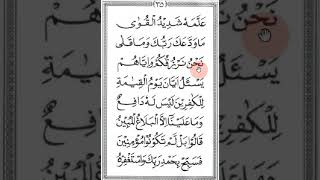 (٣٥)
عَلَّمَهٗ شَدِيْدُ الْقُوٰى
مَاوَدَّعَكَ رَبُّكَ وَمَا قَلٰى
نَحْنُ نَرْزُقُكُمْ وَاِيَّاهُمْ
يَسْـَٔلُ اَيَّانَ يَوْمُ الْقِيٰمَةِ
لِلْكٰفِرِيْنَ لَيْسَ لَهٗ دَافِعٌ
وَمَا عَلَيْنَا اِلَّا الْبَلَاغُ الْمُبِيْنُ
قَالُوْا بَلْ لَّمْ تَكُوْنُوْا مُؤْمِنِيْنَ
فَسَبِّحْ بِحَمْدِ رَبِّكَ وَاسْتَغْفِرْهُ